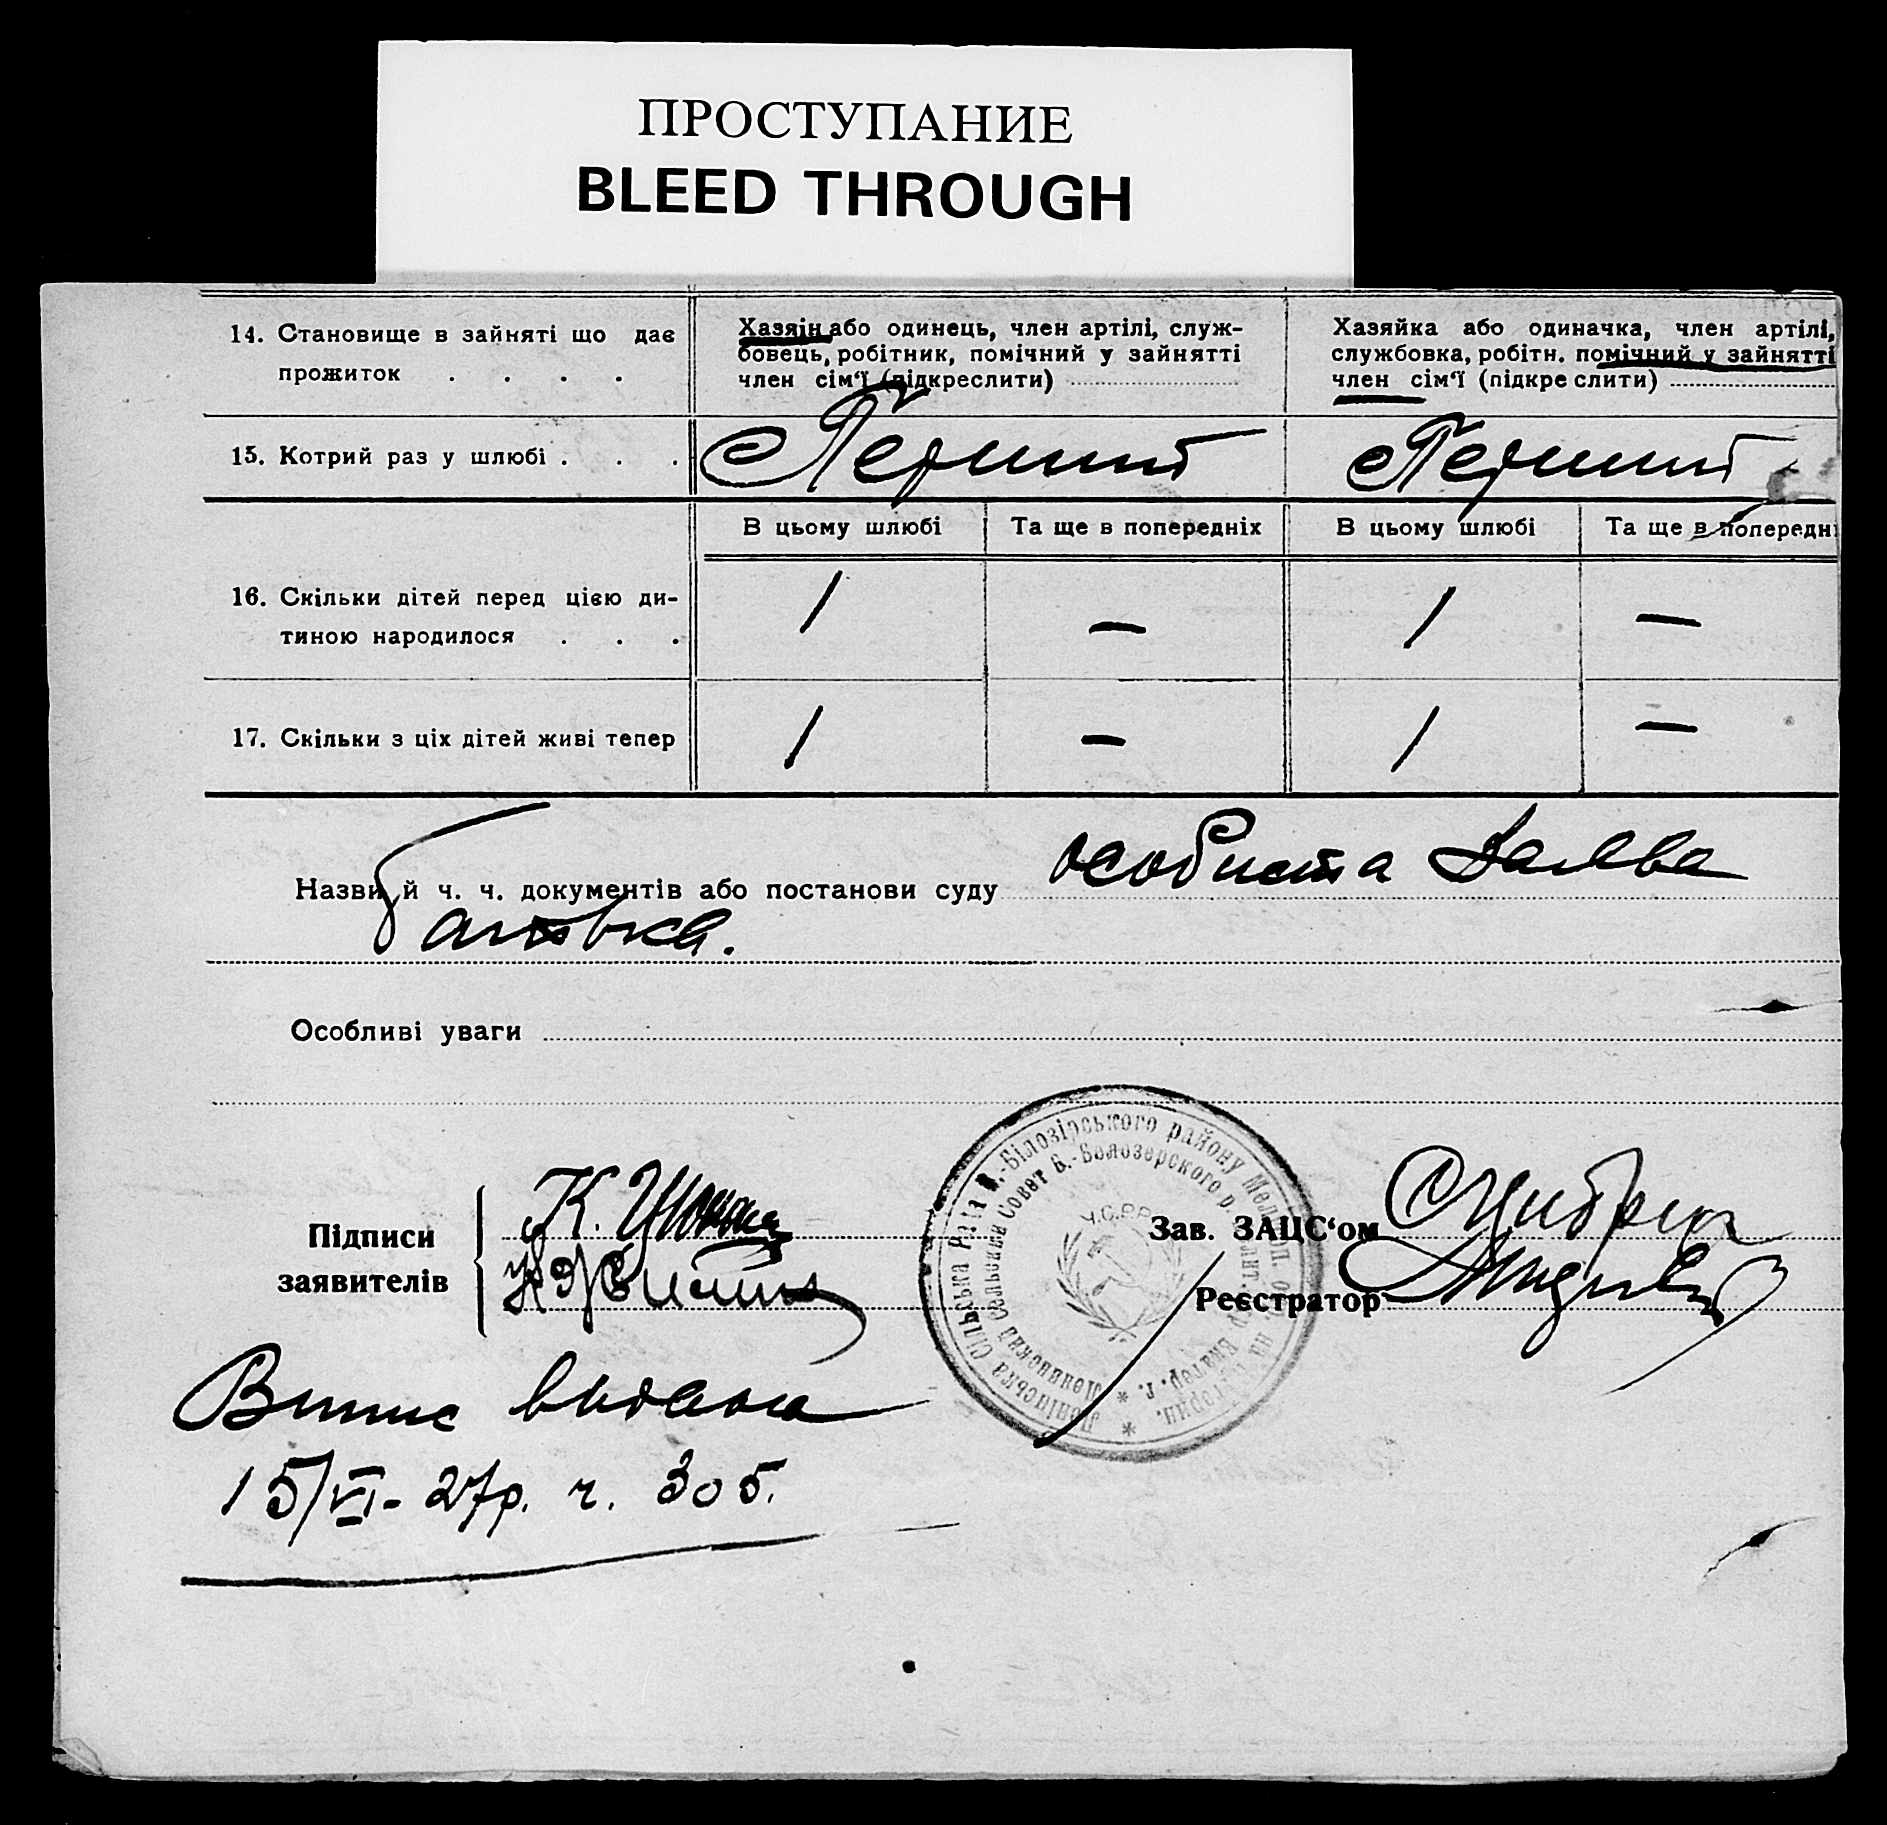 ПРОСТУПАНИЕ
BLEED THROUGH
14. Становище в зайняті що дає
прожиток . . . .
Хазяін або одинець, член артілі, служ-
бовець, робітник, помічний у зайнятті
член сім'ї (підкреслити)
Хазяйка або одиначка, член артілі,
службовка, робітн. помічний у зайнятті
член сім'ї (підкреслити)
15. Котрий раз у шлюбі . . . Перший Перший
В цьому шлюбі Та ще в попередніх В цьому шлюбі Та ще в попередні
16. Скільки дітей перед цією ди-
тиною народилося . . . 1 — 1 —
17. Скільки з ціх дітей живі тепер 1 — 1 —
Назви й ч. ч. документів або постанови суду особиста заява
батька.
Особливі уваги
Підписи
заявителів
К.
Зав. ЗАЦС'ом
Реєстратор
Ленінська Сільська Рада В.-Білозірського району Меліт
Ленинский Сельский Совет Б.-Белозерского р.
У.С.Р.Р.
Випис видана
15/VI - 27р. ч. 305.